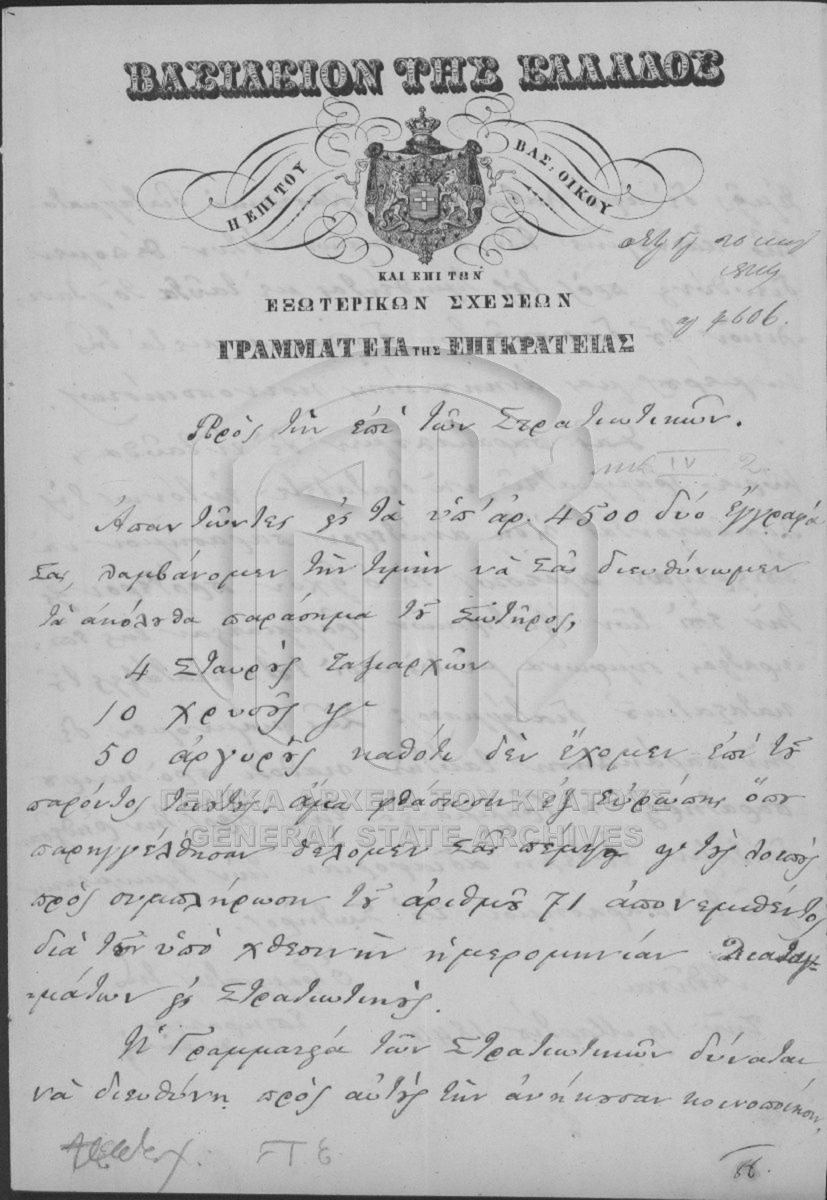 ΒΑΣΙΛΕΙΟΝ ΤΗΣ ΕΛΛΑΔΟΣ
Η ΕΠΙ ΤΟΥ ΒΑΣ: ΟΙΚΟΥ
ΚΑΙ ΕΠΙ ΤΩΝ
ΕΞΩΤΕΡΙΚΩΝ ΣΧΕΣΕΩΝ
ΓΡΑΜΜΑΤΕΙΑ ΤΗΣ ΕΠΙΚΡΑΤΕΙΑΣ
4606.
Πρὸς τὴν ἐπὶ τῶν Στρατιωτικῶν.
IV 2.
Ἀπαντῶντες εἰς τὰ ὑπ' ἀρ. 4500 δύο ἔγγραφά
Σας, λαμβάνομεν τὴν τιμὴν νὰ Σᾶς διευθύνωμεν
τὰ ἀκόλουθα παράσημα τοῦ Σωτῆρος,
4 Σταυροὺς Ταξιαρχῶν
10 χρυσοῦς καὶ
50 ἀργυροῦς καθότι δὲν ἔχομεν ἐπὶ τοῦ
παρόντος τοιούτους. ἅμα φθάσωσιν ἐξ Εὐρώπης ὅπου
παρηγγέλθησαν θέλομεν Σᾶς πέμψει καὶ τοὺς λοιποὺς
πρὸς συμπλήρωσιν τοῦ ἀριθμοῦ 71 ἀπονεμηθέντος
διὰ τῶν ὑπὸ χθεσινὴν ἡμερομηνίαν Διαταγ-
-μάτων εἰς Στρατιωτικούς.
Ἡ Γραμματεία τῶν Στρατιωτικῶν δύναται
νὰ διευθύνῃ πρὸς αὐτοὺς τὴν ἀνήκουσαν κοινοποίησιν,
ΓΕΝΙΚΑ ΑΡΧΕΙΑ ΤΟΥ ΚΡΑΤΟΥΣ
GENERAL STATE ARCHIVES